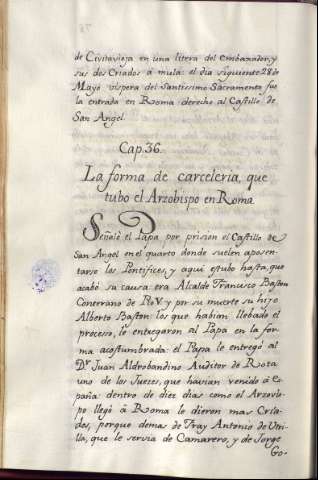 de Civitavieja en una litera del embaxador, y
sus dos Criados á mula: el dia siguiente 28 de
Mayo vispera del Santissimo Sacramento fue
la entrada en Roma derecho al Castillo de
San Angel.
Cap. 36.
La forma de carceleria, que
tubo el Arzobispo en Roma
Señaló el Papa por prision el Castillo de
San Angel en el quarto donde suelen aposen-
tarse los Pontifices, y aqui estubo hasta, que
acabó su causa: era Alcalde Francisco Baston
Conterrano de Pio V. y por su muerte su hijo
Alberto Baston: los que habian llebado el
proceso, le entregaron al Papa en la for
ma acostumbrada: el Papa le entregó al
Dr. Juan Aldrobandino Auditor de Rota
uno de los Jueces, que havian venido á Es
paña: dentro de diez dias como el Arzovis
po llegó á Roma le dieron mas Cria-
dos, porque demas de Fray Antonio de Utri-
lla, que le servia de Camarero, y de Jorge
Go-